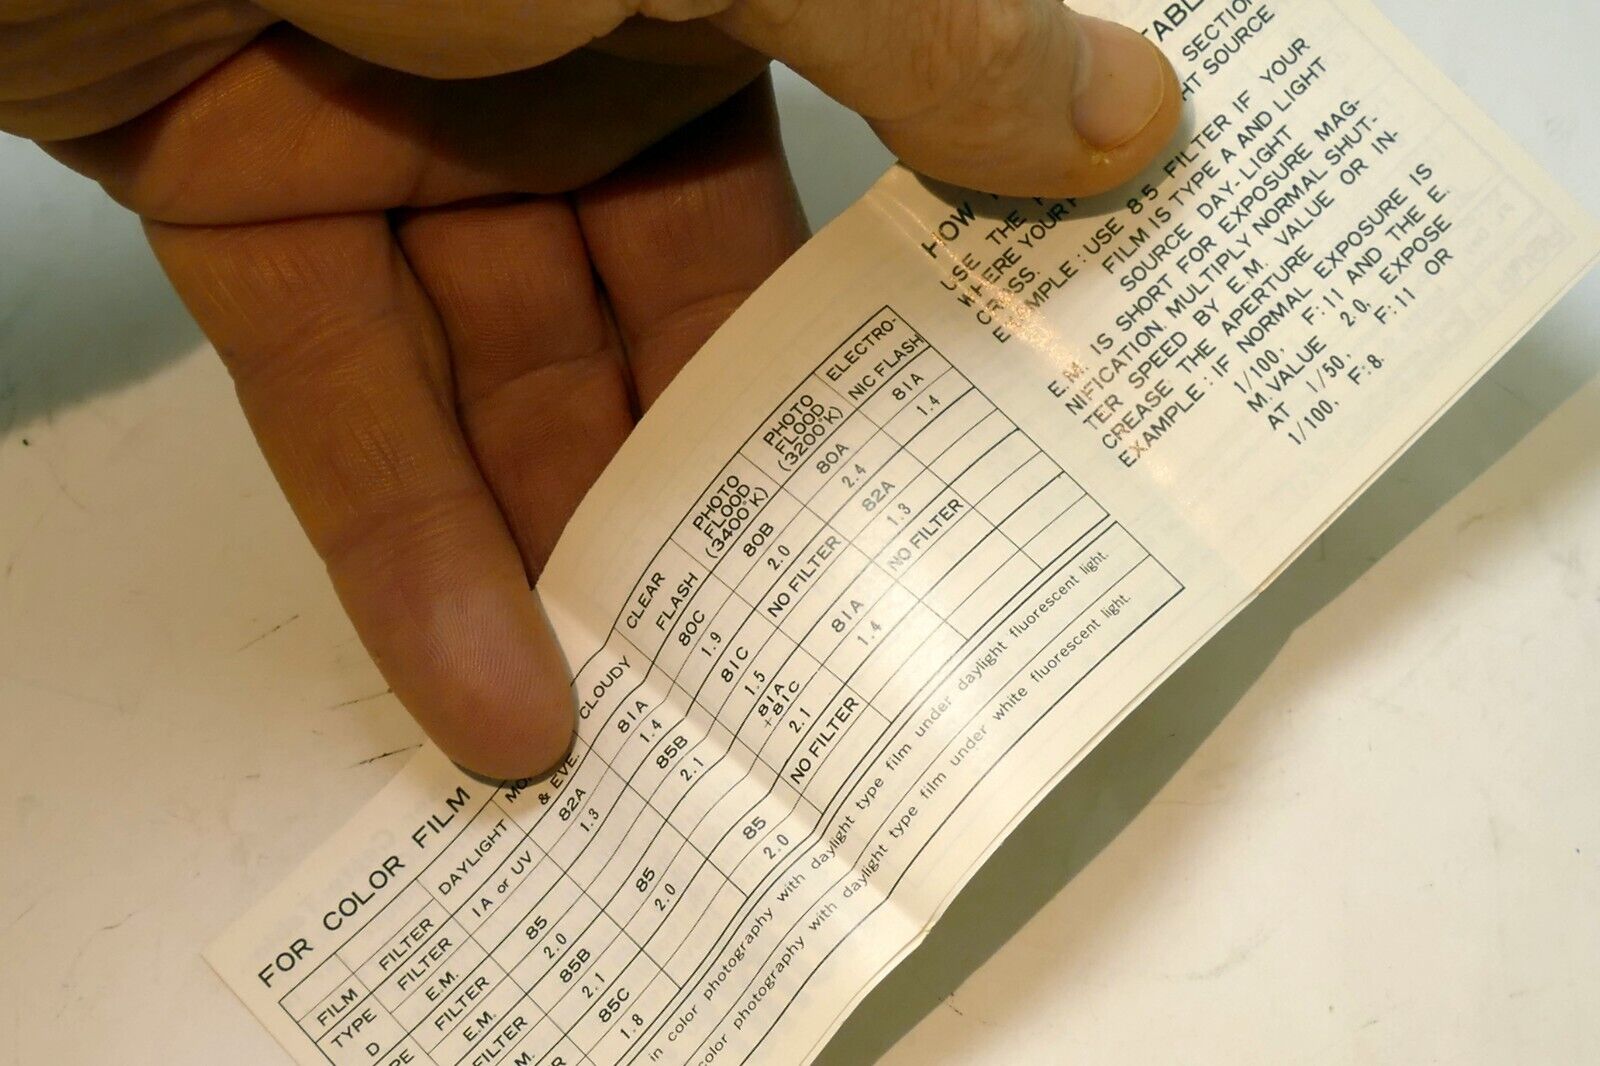 FOR COLOR FILM
FILM FILTER DAYLIGHT & EVE. CLOUDY CLEAR FLASH PHOTO FLOOD (3400°K) PHOTO FLOOD (3200°K) ELECTRO-NIC FLASH
TYPE D FILTER 1A or UV 82A 81A 80C 80B 80A 81A
E.M. 1.3 1.4 1.9 2.0 2.4 1.4
FILTER 85 85B 81C NO FILTER 82A
E.M. 2.0 2.1 1.5 1.3
FILTER 85B 85 81A +81C 81A NO FILTER
2.1 2.0 2.1 1.4
85C 85 NO FILTER
1.8 2.0
in color photography with daylight type film under daylight fluorescent light.
color photography with daylight type film under white fluorescent light.
HOW
USE THE SECTION
WHERE YOUR SOURCE
EXAMPLE: USE 85 FILTER IF YOUR
FILM IS TYPE A AND LIGHT
SOURCE DAY-LIGHT
E.M. IS SHORT FOR EXPOSURE MAG-
NIFICATION. MULTIPLY NORMAL SHUT-
TER SPEED BY E.M. VALUE OR IN-
CREASE THE APERTURE
EXAMPLE: IF NORMAL EXPOSURE IS
1/100, F:11 AND THE E.
M. VALUE 2.0, EXPOSE
AT 1/50, F:11 OR
1/100. F:8.